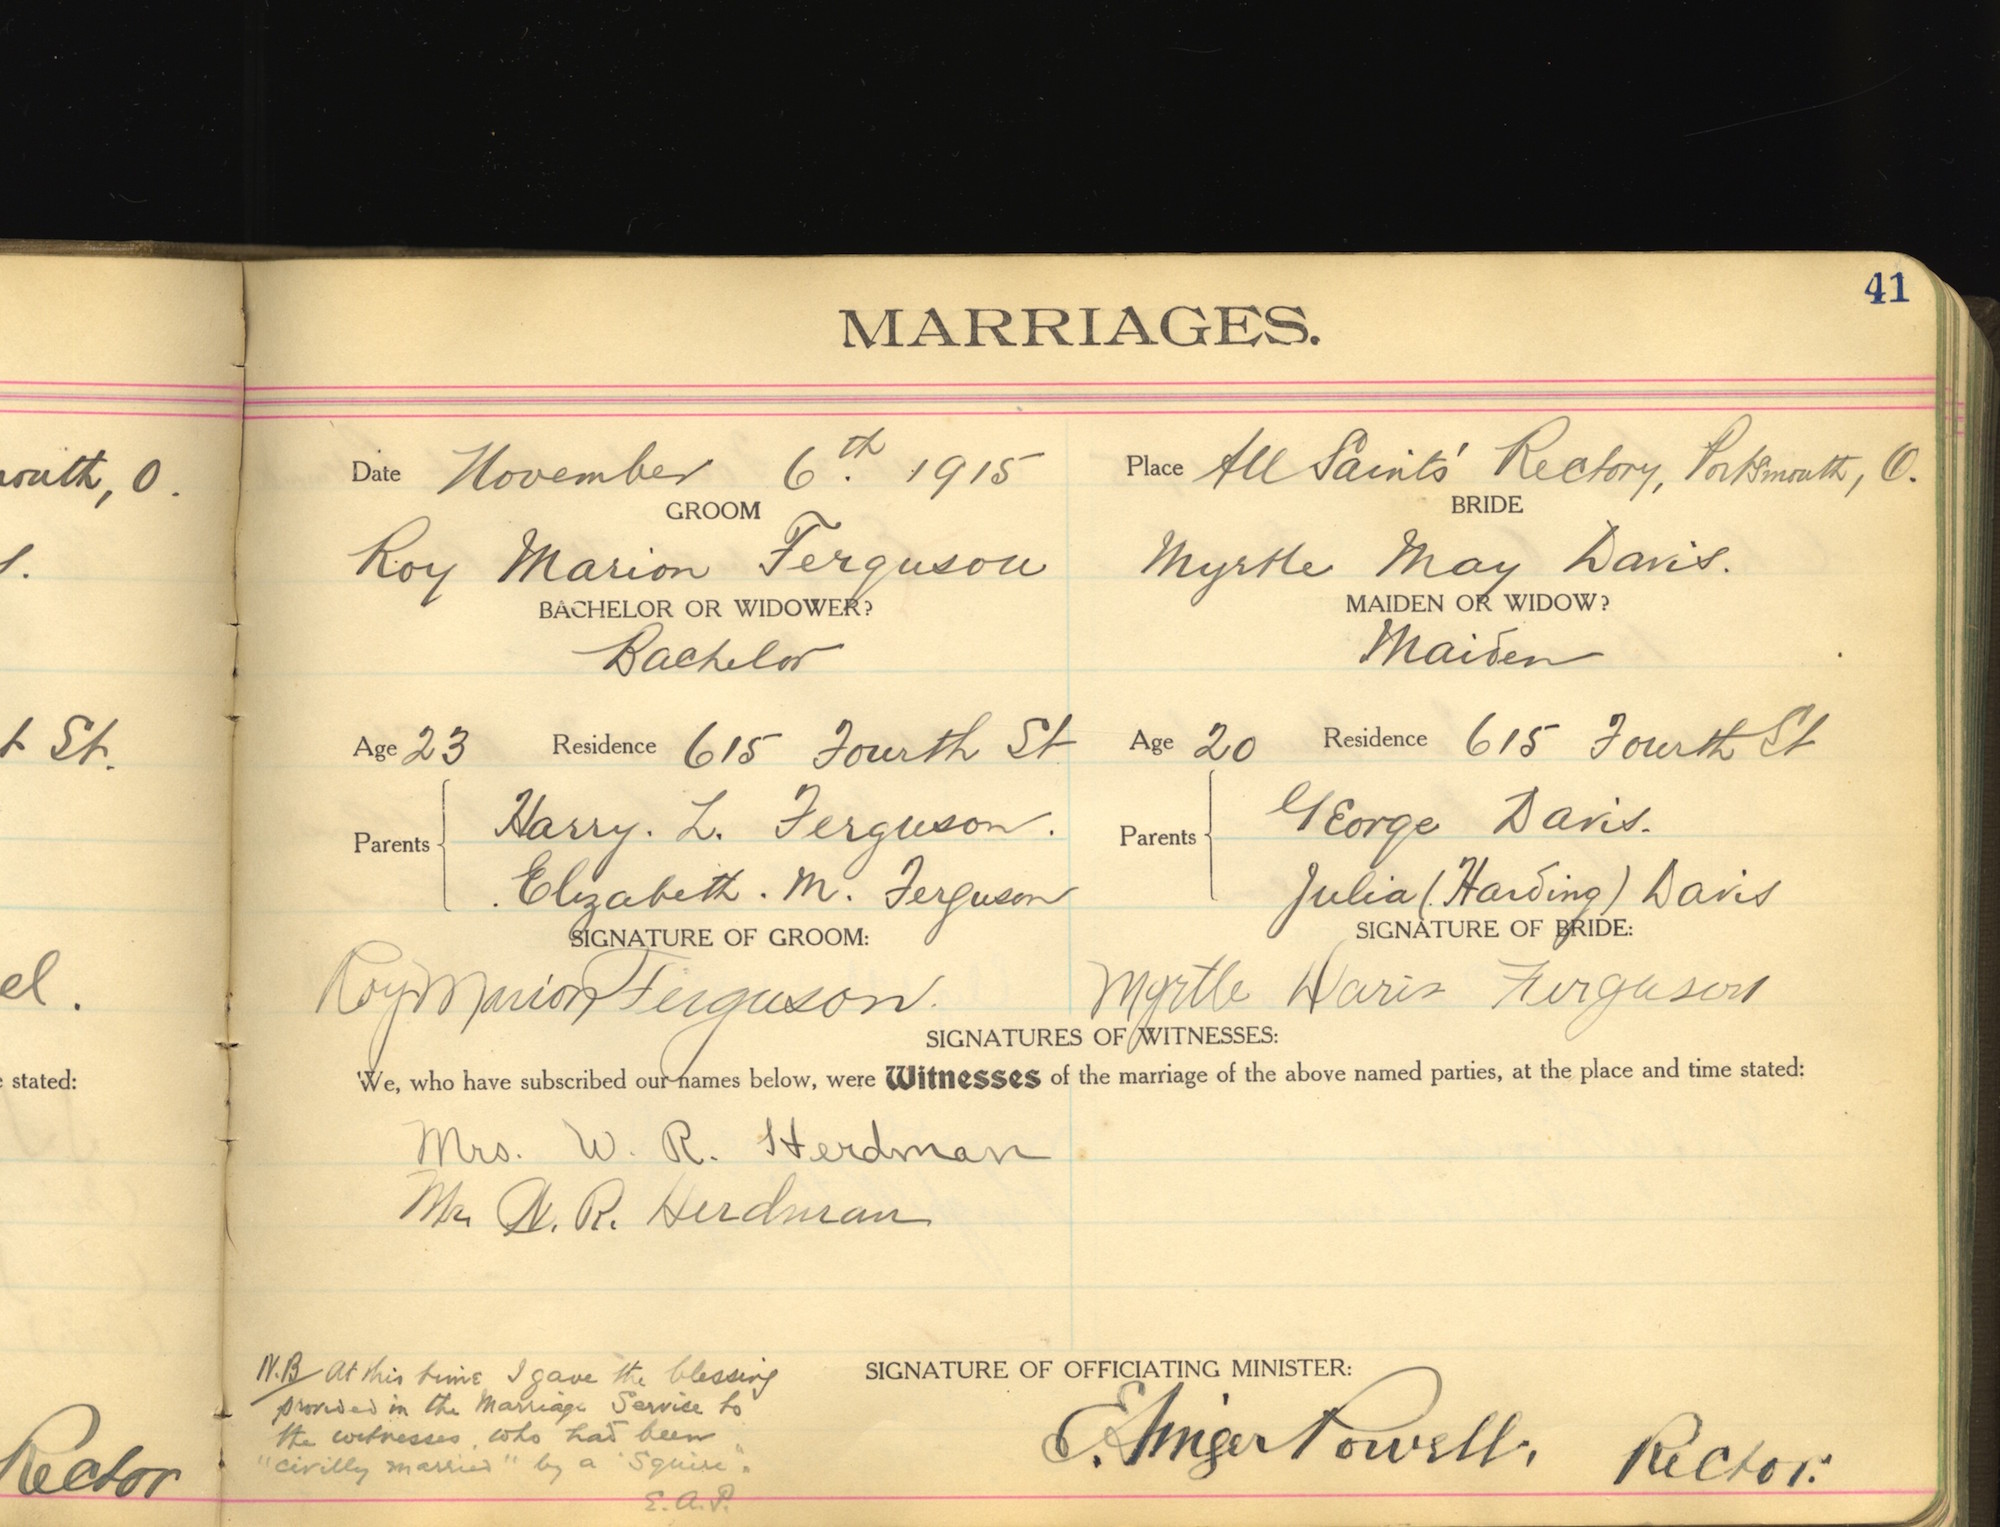 41
MARRIAGES.
outh, O.
Date November 6th. 1915
Place All Saints' Rectory, Portsmouth, O.
GROOM
BRIDE
Roy Marion Ferguson
Myrtle May Davis.
BACHELOR OR WIDOWER?
MAIDEN OR WIDOW?
Bachelor
Maiden
St.
Age 23 Residence 615 Fourth St
Age 20 Residence 615 Fourth St
Parents
Harry. L. Ferguson.
Elizabeth. M. Ferguson
Parents
George Davis.
Julia (Harding) Davis
SIGNATURE OF GROOM:
SIGNATURE OF BRIDE:
el.
Roy Marion Ferguson.
Myrtle Davis Ferguson
SIGNATURES OF WITNESSES:
stated:
We, who have subscribed our names below, were Witnesses of the marriage of the above named parties, at the place and time stated:
Mrs. W. R. Herdman
Mr W. R. Herdman
N.B At this time I gave the blessing
provided in the Marriage Service to
the witnesses, who had been
"civilly married" by a "Squire".
E.A.P.
SIGNATURE OF OFFICIATING MINISTER:
E. Ainger Powell, Rector.
Rector